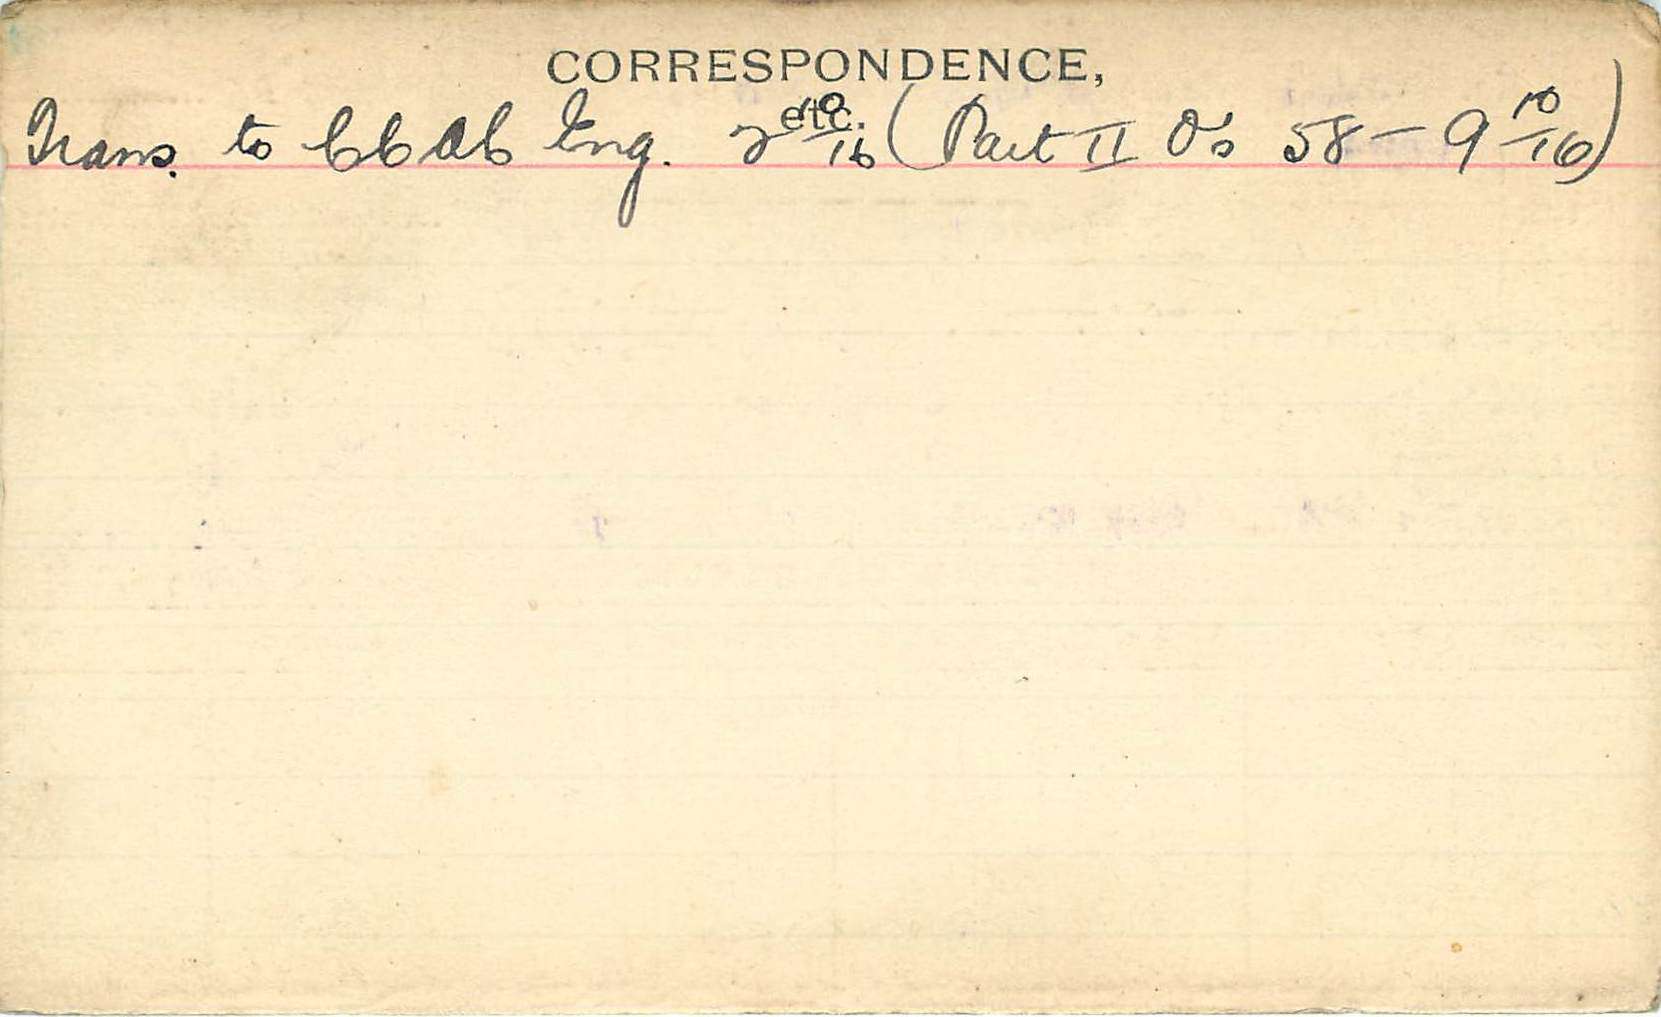 CORRESPONDENCE,
etc.
Trans. to CCAC Eng. 2 10/16 (Part II O's 58 - 9 10/16)